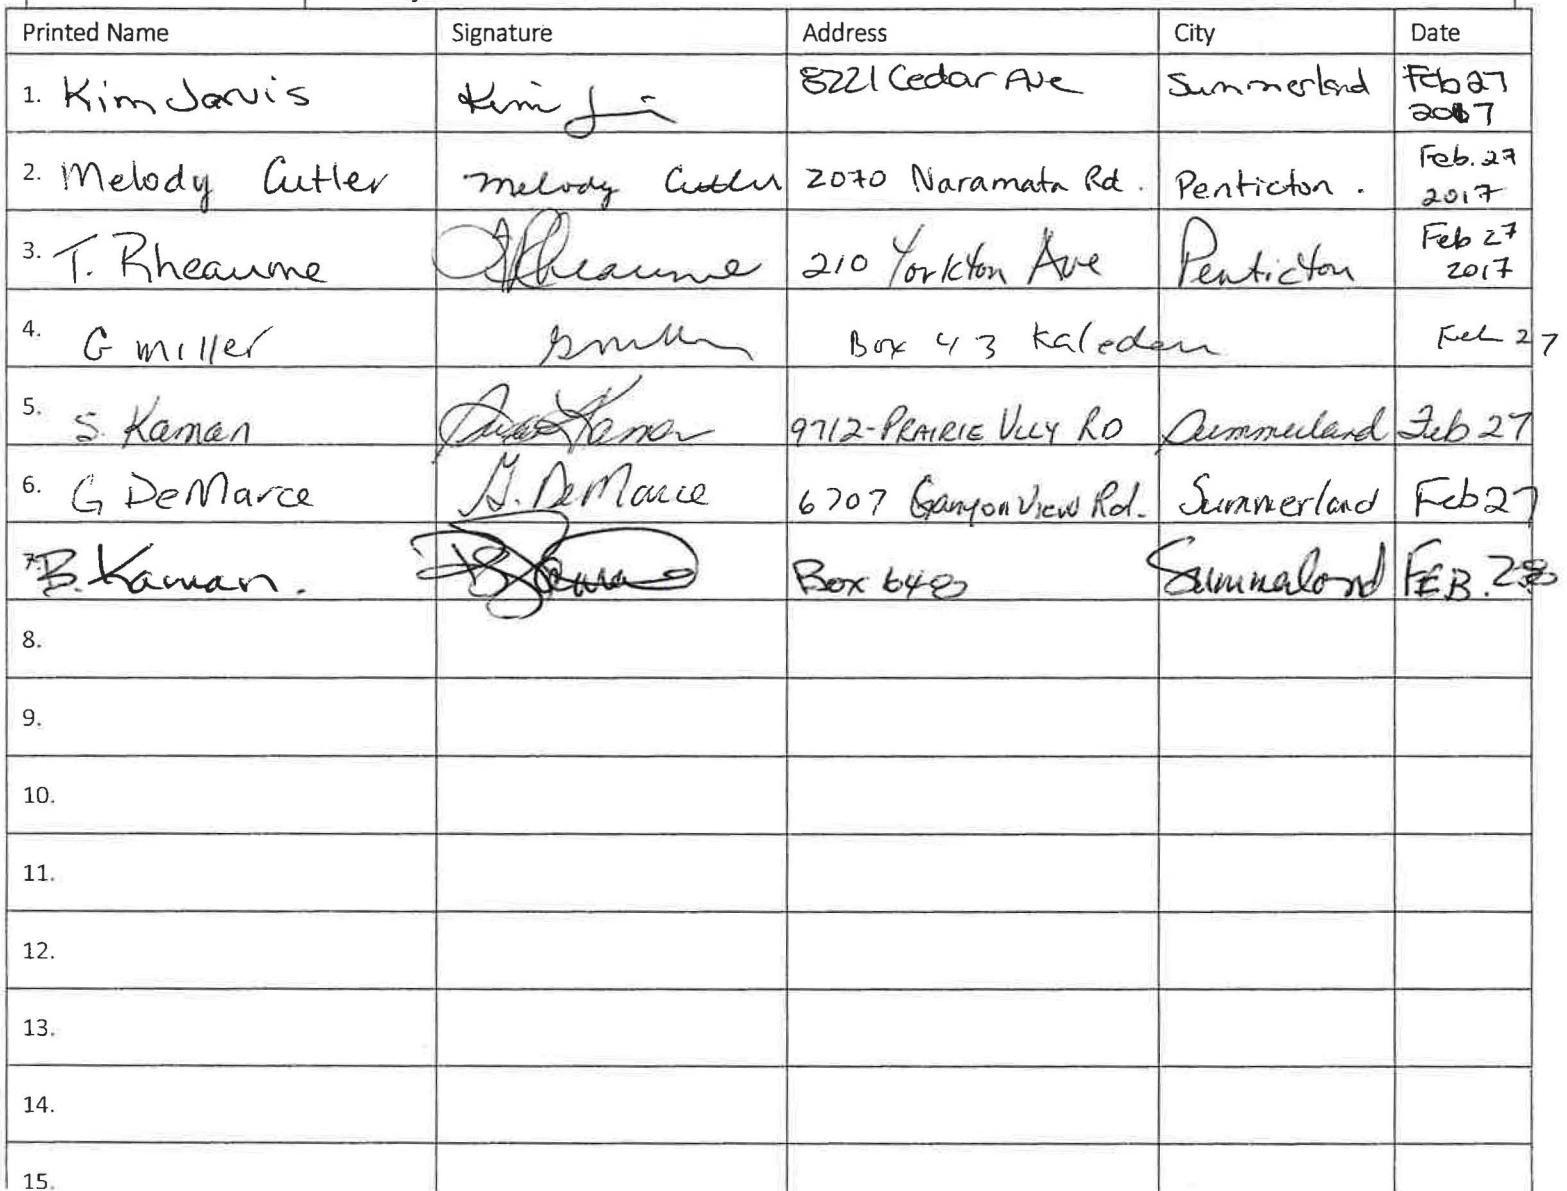 Printed Name Signature Address City Date
1. Kim Jarvis Kim 8221 Cedar Ave Summerland Feb 27 2017
2. Melody Cutler Melody Cutler 2070 Naramata Rd. Penticton. Feb. 27 2017
3. T. Rheaume T Rheaume 210 Yorkton Ave Penticton Feb 27 2017
4. G miller Box 43 Kaleden Feb 27
5. S. Kaman Kaman 9712-PRAIRIE VLLY RD Summerland Feb 27
6. G DeMarce G. DeMarce 6707 Canyon View Rd. Summerland Feb 27
7. B. Kaman. Box 648 Summerland FEB. 28
8.
9.
10.
11.
12.
13.
14.
15.